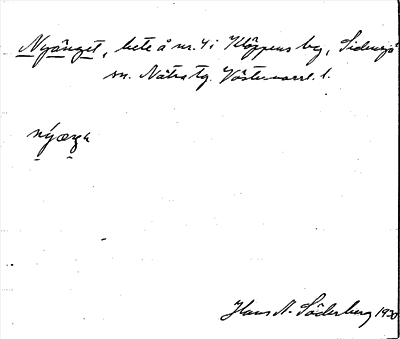 Nyänget, bete å nr. 4 i Klöppens by, Sidensjö
sn. Nätra tg. Västernorrl. l.
nýæŋɛ
Hans N. Söderberg 1930